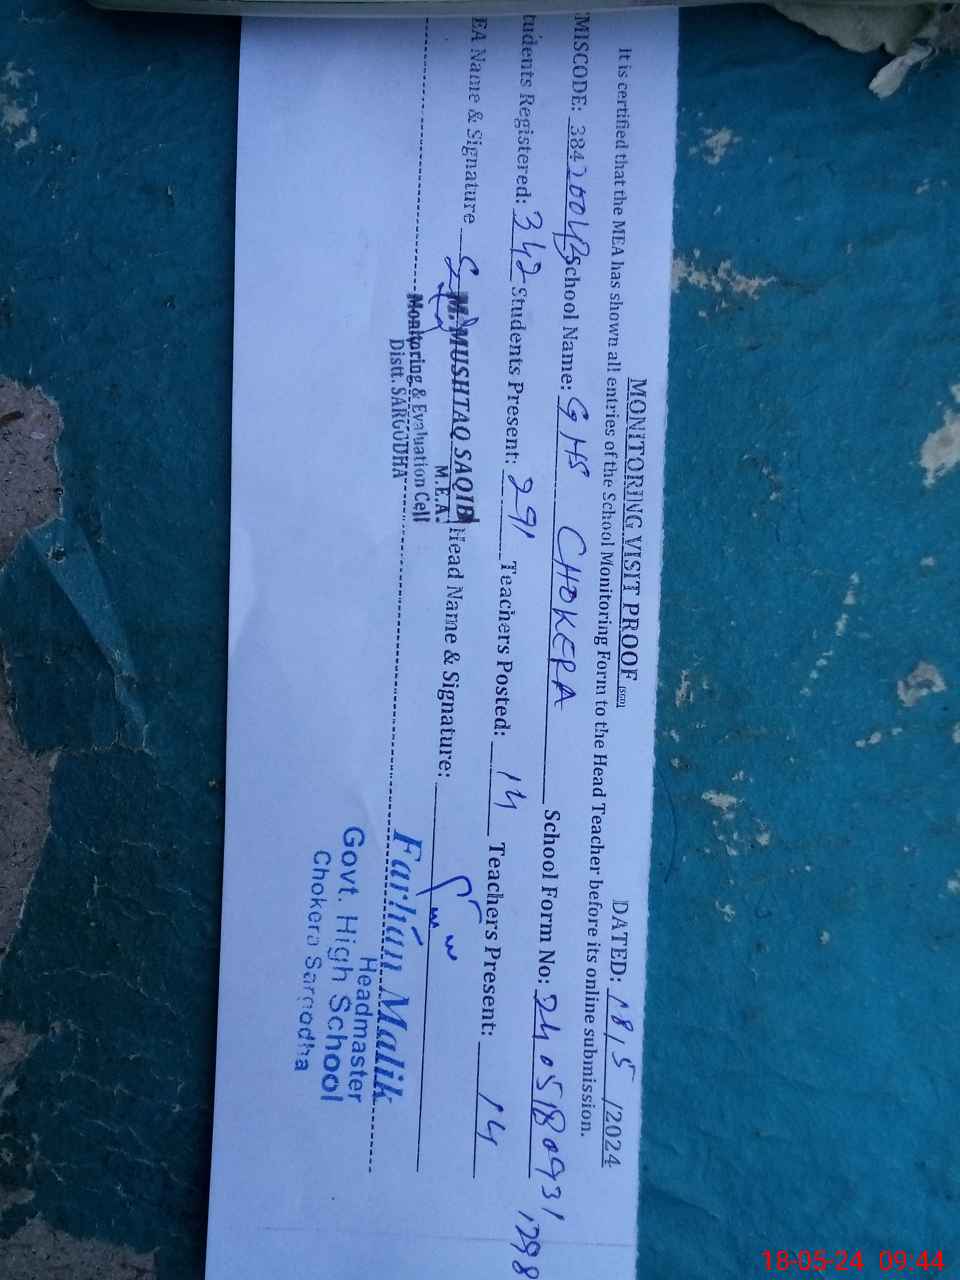 MONITORING VISIT PROOF [SGD]
DATED: 18/5/2024
It is certified that the MEA has shown all entries of the School Monitoring Form to the Head Teacher before its online submission.
MISCODE: School Name: GHS CHOKERA School Form No: 2405180931
1298
tudents Registered: 342 Students Present: 291 Teachers Posted: 14 Teachers Present: 14
EA Name & Signature Head Name & Signature:
M. MUSHTAQ SAQIB
M.E.A.
Monitoring & Evaluation Cell
Distt. SARGODHA
Farhan Malik
Headmaster
Govt. High School
Chokera Sargodha
18-05-24 09:44